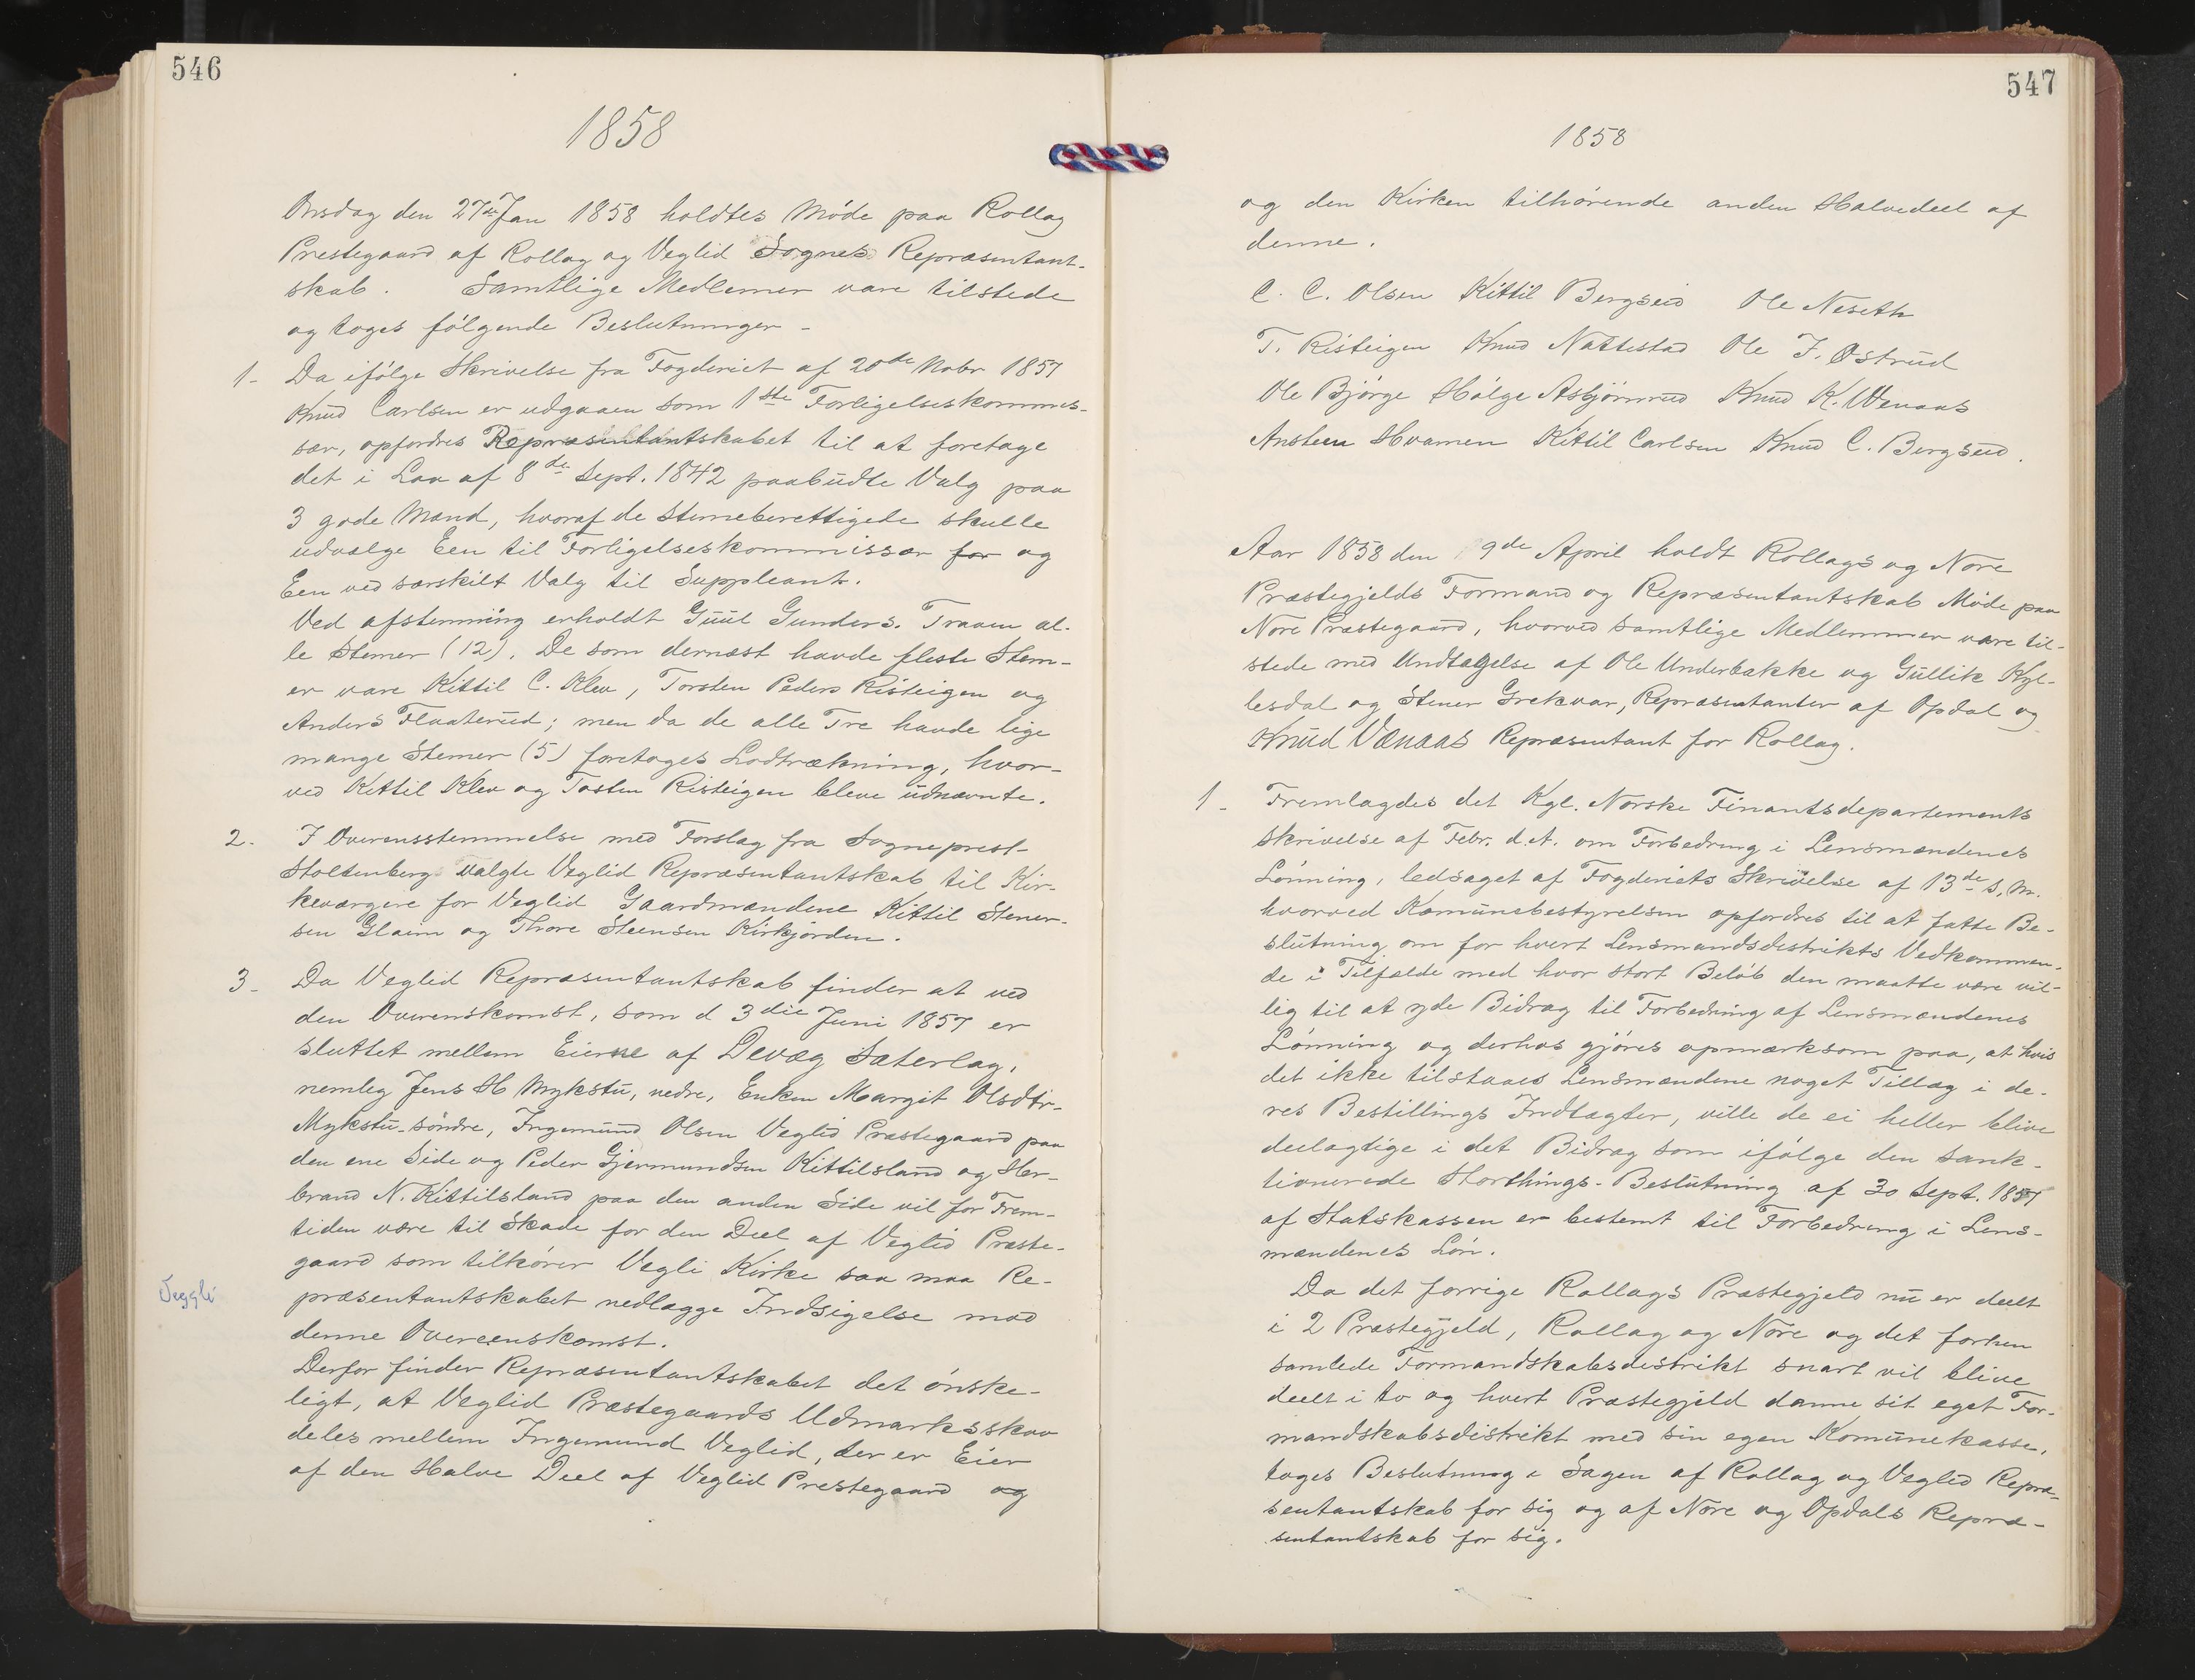 546
1858
Onsdag den 27de Jan 1858 holdtes Möde paa Rollag
Prestegaard af Rollag og Veglid Sognes Repræsentant-
skab. Samtlige Medlemer vare tilstede
og toges fölgende Beslutninger -
1- Da ifölge Skrivelse fra Fogderiet af 20de Nobr 1857
Knud Carlsen er udgaaen som 1ste Forligelseskommis-
sær, opfordres Repræsentantskabet til at foretage
det i Lov af 8de Sept. 1842 paabudte Valg paa
3 gode Mænd, hvoraf de Stemeberettigede skulle
udvælge Een til Forligelseskommissær for og
Een ved særskilt Valg til Suppleant.
Ved afstemning erholdt Guul Gunders. Traaen al-
le Stemer (12). De som dernæst havde fleste Stem-
er vare Kittil C. Klev, Torsten Peders Risteigen og
Anders Flaaterud; men da de alle Tre havde lige
mange Stemer (5) foretoges Lodtrækning, hvor-
ved Kittil Klev og Tosten Risteigen bleve udnævnte.
2. I Overensstemmelse med Forslag fra Sogneprest
Stoltenberg valgte Veglid Repræsentantskab til Kir-
keværgere for Veglid Gaardmændene Kittil Stener-
sen Glaim og Thore Steensen Kirkjorden.
3- Da Veglid Repræsentantskab finder at ved
den Overenskomst, som d 3die Juni 1857 er
sluttet mellem Eierne af Devæg Sæterlag,
nemleg Jens H Mykstu, nedre, Enken Margit Olsdtr-
Mykstu-söndre, Ingemund Olsen Veglid Præstegaard paa
den ene Side og Peder Gjermundsen Kittilsland og Her-
brand N. Kittilsland paa den anden Side vil for Frem-
tiden være til Skade for den Deel af Veglid Præste-
gaard som tilhörer Vegli Kirke saa maa Re-
præsentantskabet nedlægge Indsigelse mod
denne Overeenskomst.
Veggli
Derfor finder Repræsentantskabet det önske-
ligt, at Veglid Præstegaards Udmarksskov
deles mellem Ingemund Veglid, der er Eier
af den Halve Deel af Veglid Prestegaard og
547
1858
og den Kirken tilhörende anden Halvedeel af
denne.
C. C. Olsen Kittil Bergseid Ole Neseth
T. Risteigen Knud Nattestad Ole J. Østrud
Ole Bjørge Hölge Asbjörnrud Knud K. Wænaas
Ansteen Hvamen Kittil Carlsen Knud C. Bergseid.
Aar 1858 den 9de April holdt Rollags og Nore
Præstegjelds Formand og Repræsentantskab Möde paa
Nore Præstegaard, hvorved samtlige Medlemmer vare til-
stede med Undtagelse af Ole Underbakke og Gullik Kyl-
lesdal og Stener Grekvar, Repræsentanter af Opdal og
Knud Vænaas Repræsentant for Rollag.
1- Fremlagdes det Kgl. Norske Finantsdepartements
skrivelse af Febr. d.A. om Forbedring i Lensmændenes
Lönning, ledsaget af Fogderiets Skrivelse af 13de s. M.
hvorved Komunebestyrelsen opfordres til at fatte Be-
slutning om for hvert Lensmandsdistrikts Vedkommen-
de i Tilfælde med hvor stort Belöb den maatte være vil-
lig til at yde Bidrag til Forbedring af Lensmændenes
Lönning og derhos gjöres opmærksom paa, at hvis
det ikke tilstaaes Lensmændene noget Tillæg i de-
res Bestillings Indtægter, ville de ei heller blive
deelagtige i det Bidrag som ifölge den sank-
tionerede Storthings-Beslutning af 30 Sept. 1857
af Statskassen er bestemt til Forbedring i Lens-
mændenes Lön.
Da det forrige Rollags Præstegjeld nu er deelt
i 2 Præstegjeld, Rollag og Nore og det forhen
samlede Formandskabsdistrikt snart vil blive
deelt i to og hvert Præstegjeld danne sit eget For-
mandskabsdistrikt med sin egen Komunekasse,
toges Beslutning i Sagen af Rollag og Veglid Repræ-
sentantskab for sig og af Nore og Opdals Repræ-
sentantskab for sig.